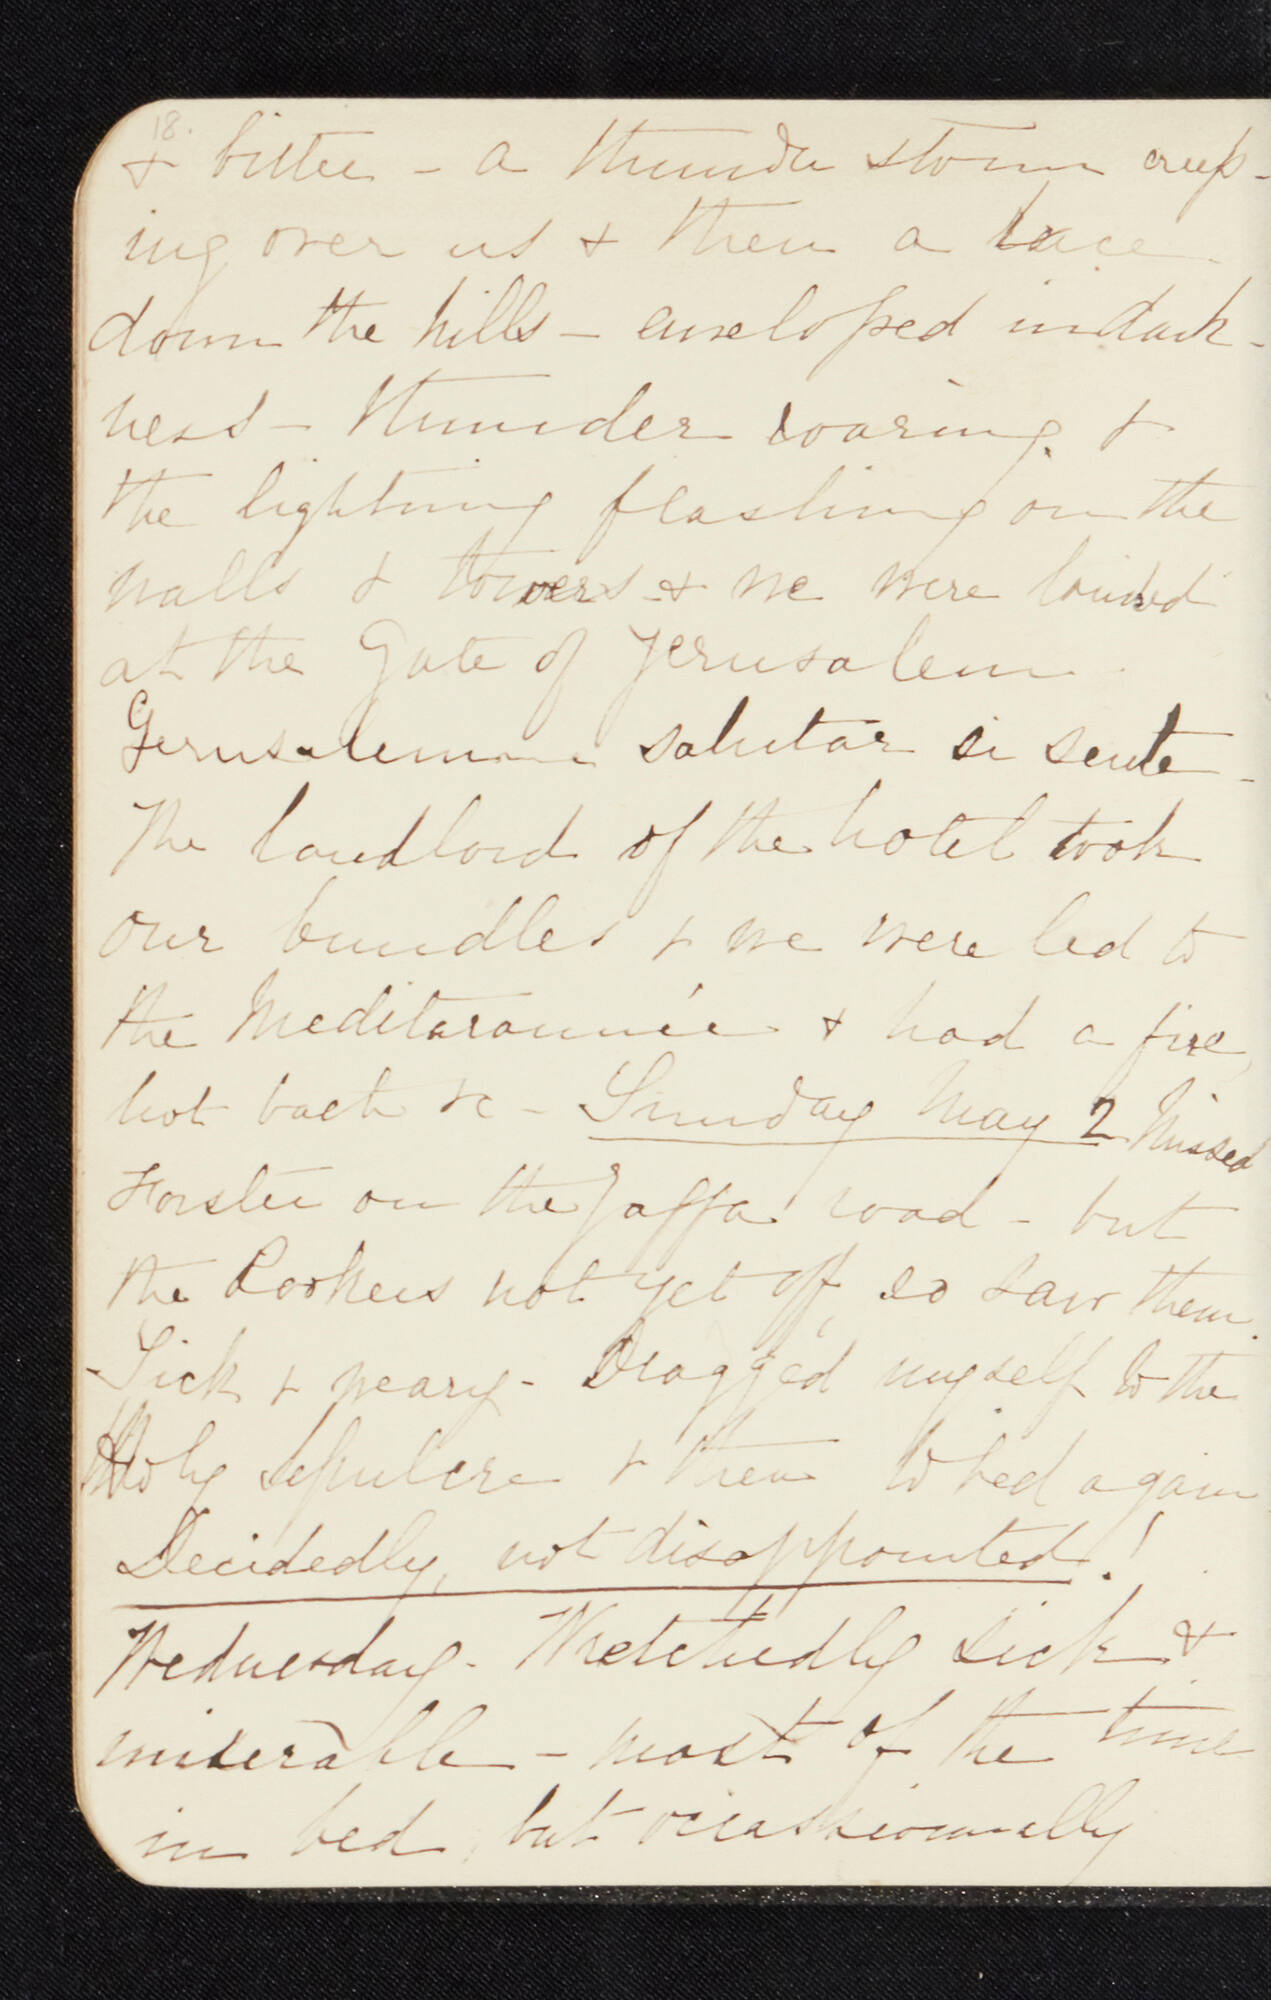 18.
& bitter - a thunder storm creep-
ing over us & then a race
down the hills - enveloped in dark-
ness - thunder roaring &
the lightning flashing on the
walls & towers & we were landed
at the Gate of Jerusalem
Gerusalemme salutar si sente -
The landlord of the hotel took
our bundles & we were led to
the Meditarannée & had a fire,
hot bath &c - Sunday May 2 Missed
Forster on the Jaffa road - but
the Cookers not yet off, so saw them.
- Sick & weary - Dragged myself to the
Holy Sepulcre & then to bed again
Decidedly, not disappointed!
Wednesday - Wretchedly sick &
miserable - most of the time
in bed, but occasionally